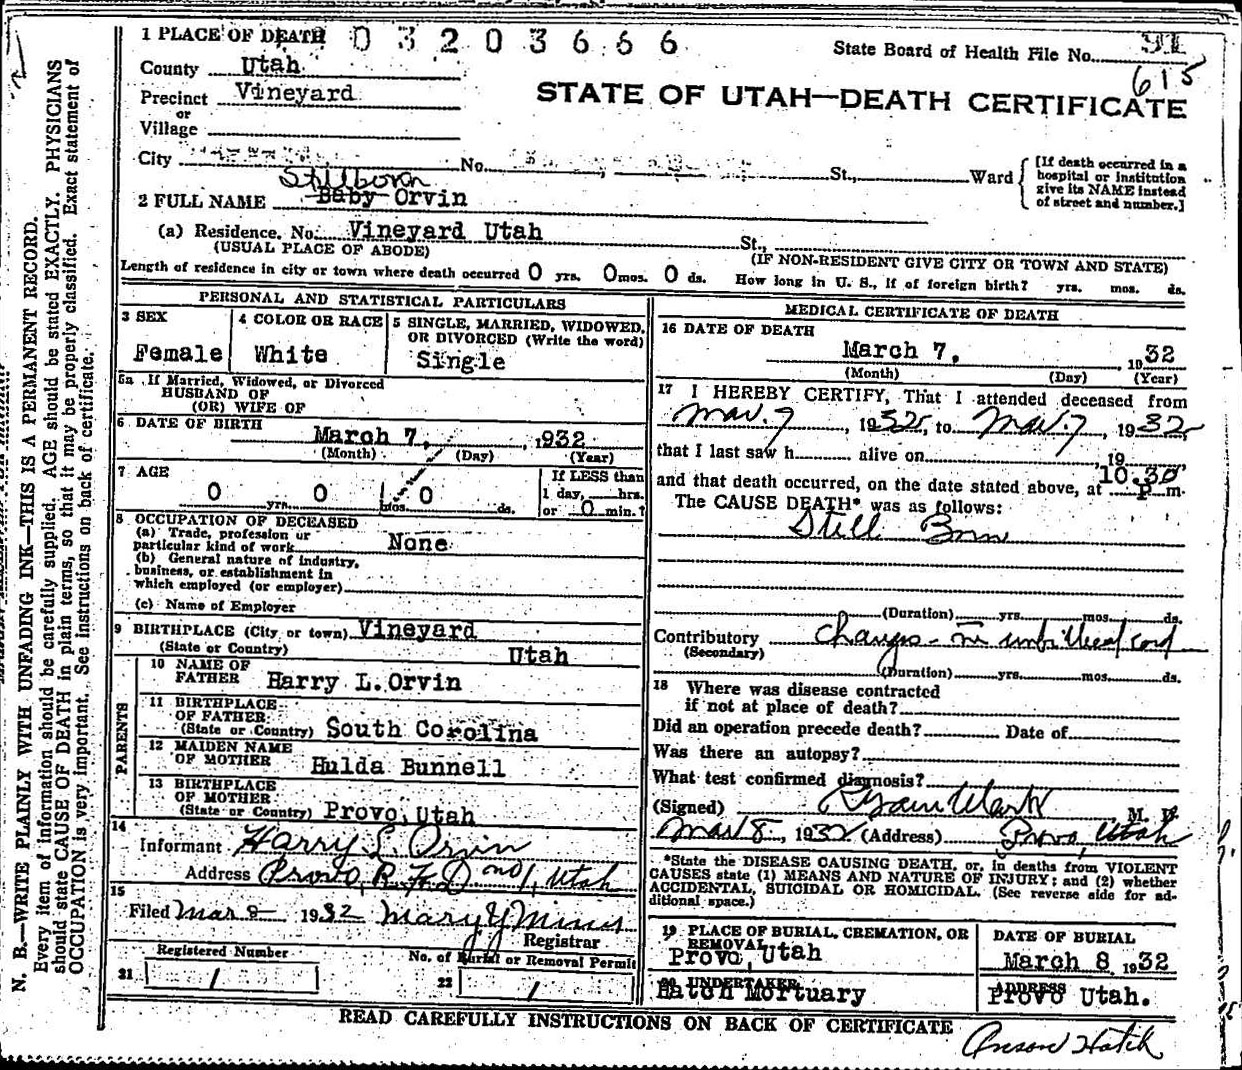 1 PLACE OF DEATH 03203666 State Board of Health File No. 91
615
County Utah
Precinct Vineyard
or
Village
STATE OF UTAH—DEATH CERTIFICATE
City No. St., Ward [If death occurred in a hospital or institution give its NAME instead of street and number.]
Stillborn
2 FULL NAME Baby Orvin
(a) Residence. No. Vineyard Utah St.,
(USUAL PLACE OF ABODE) (IF NON-RESIDENT GIVE CITY OR TOWN AND STATE)
Length of residence in city or town where death occurred 0 yrs. 0 mos. 0 ds. How long in U. S., if of foreign birth? yrs. mos. ds.
PERSONAL AND STATISTICAL PARTICULARS
3 SEX
Female
4 COLOR OR RACE
White
5 SINGLE, MARRIED, WIDOWED, OR DIVORCED (Write the word)
Single
5a If Married, Widowed, or Divorced
HUSBAND OF
(OR) WIFE OF
6 DATE OF BIRTH
March 7, 1932
(Month) (Day) (Year)
7 AGE
0 yrs. 0 mos. 0 ds.
If LESS than
1 day, hrs.
or 0 min.?
8 OCCUPATION OF DECEASED
(a) Trade, profession or
particular kind of work None
(b) General nature of industry,
business, or establishment in
which employed (or employer)
(c) Name of Employer
9 BIRTHPLACE (City or town) Vineyard
(State or Country) Utah
PARENTS
10 NAME OF
FATHER Harry L. Orvin
11 BIRTHPLACE
OF FATHER
(State or Country) South Corolina
12 MAIDEN NAME
OF MOTHER Hulda Bunnell
13 BIRTHPLACE
OF MOTHER
(State or Country) Provo, Utah
14
Informant Harry L. Orvin
Address Provo, R.F.D no 1, Utah
15
Filed Mar 8 1932 Mary Y Mims
Registrar
Registered Number
21 1
No. of Burial or Removal Permit
22 1
MEDICAL CERTIFICATE OF DEATH
16 DATE OF DEATH
March 7, 1932
(Month) (Day) (Year)
17 I HEREBY CERTIFY, That I attended deceased from
Mar. 7, 1932, to Mar. 7, 1932,
that I last saw h alive on , 19
and that death occurred, on the date stated above, at 10.30 P m.
The CAUSE DEATH* was as follows:
Still Born
(Duration) yrs. mos. ds.
Contributory Changes in umbilical cord
(Secondary)
(Duration) yrs. mos. ds.
18 Where was disease contracted
if not at place of death?
Did an operation precede death? Date of
Was there an autopsy?
What test confirmed diagnosis?
(Signed) Clark M. D.
Mar 8, 1932 (Address) Provo, Utah
*State the DISEASE CAUSING DEATH, or, in deaths from VIOLENT
CAUSES state (1) MEANS AND NATURE OF INJURY; and (2) whether
ACCIDENTAL, SUICIDAL OR HOMICIDAL. (See reverse side for ad-
ditional space.)
19 PLACE OF BURIAL, CREMATION, OR
REMOVAL
Provo, Utah
DATE OF BURIAL
March 8 1932
20 UNDERTAKER
Hatch Mortuary
ADDRESS
Provo Utah.
READ CAREFULLY INSTRUCTIONS ON BACK OF CERTIFICATE
Anson Hatch
N. B.—WRITE PLAINLY WITH UNFADING INK—THIS IS A PERMANENT RECORD.
Every item of information should be carefully supplied. AGE should be stated EXACTLY. PHYSICIANS
should state CAUSE OF DEATH in plain terms, so that it may be properly classified. Exact statement of
OCCUPATION is very important. See instructions on back of certificate.